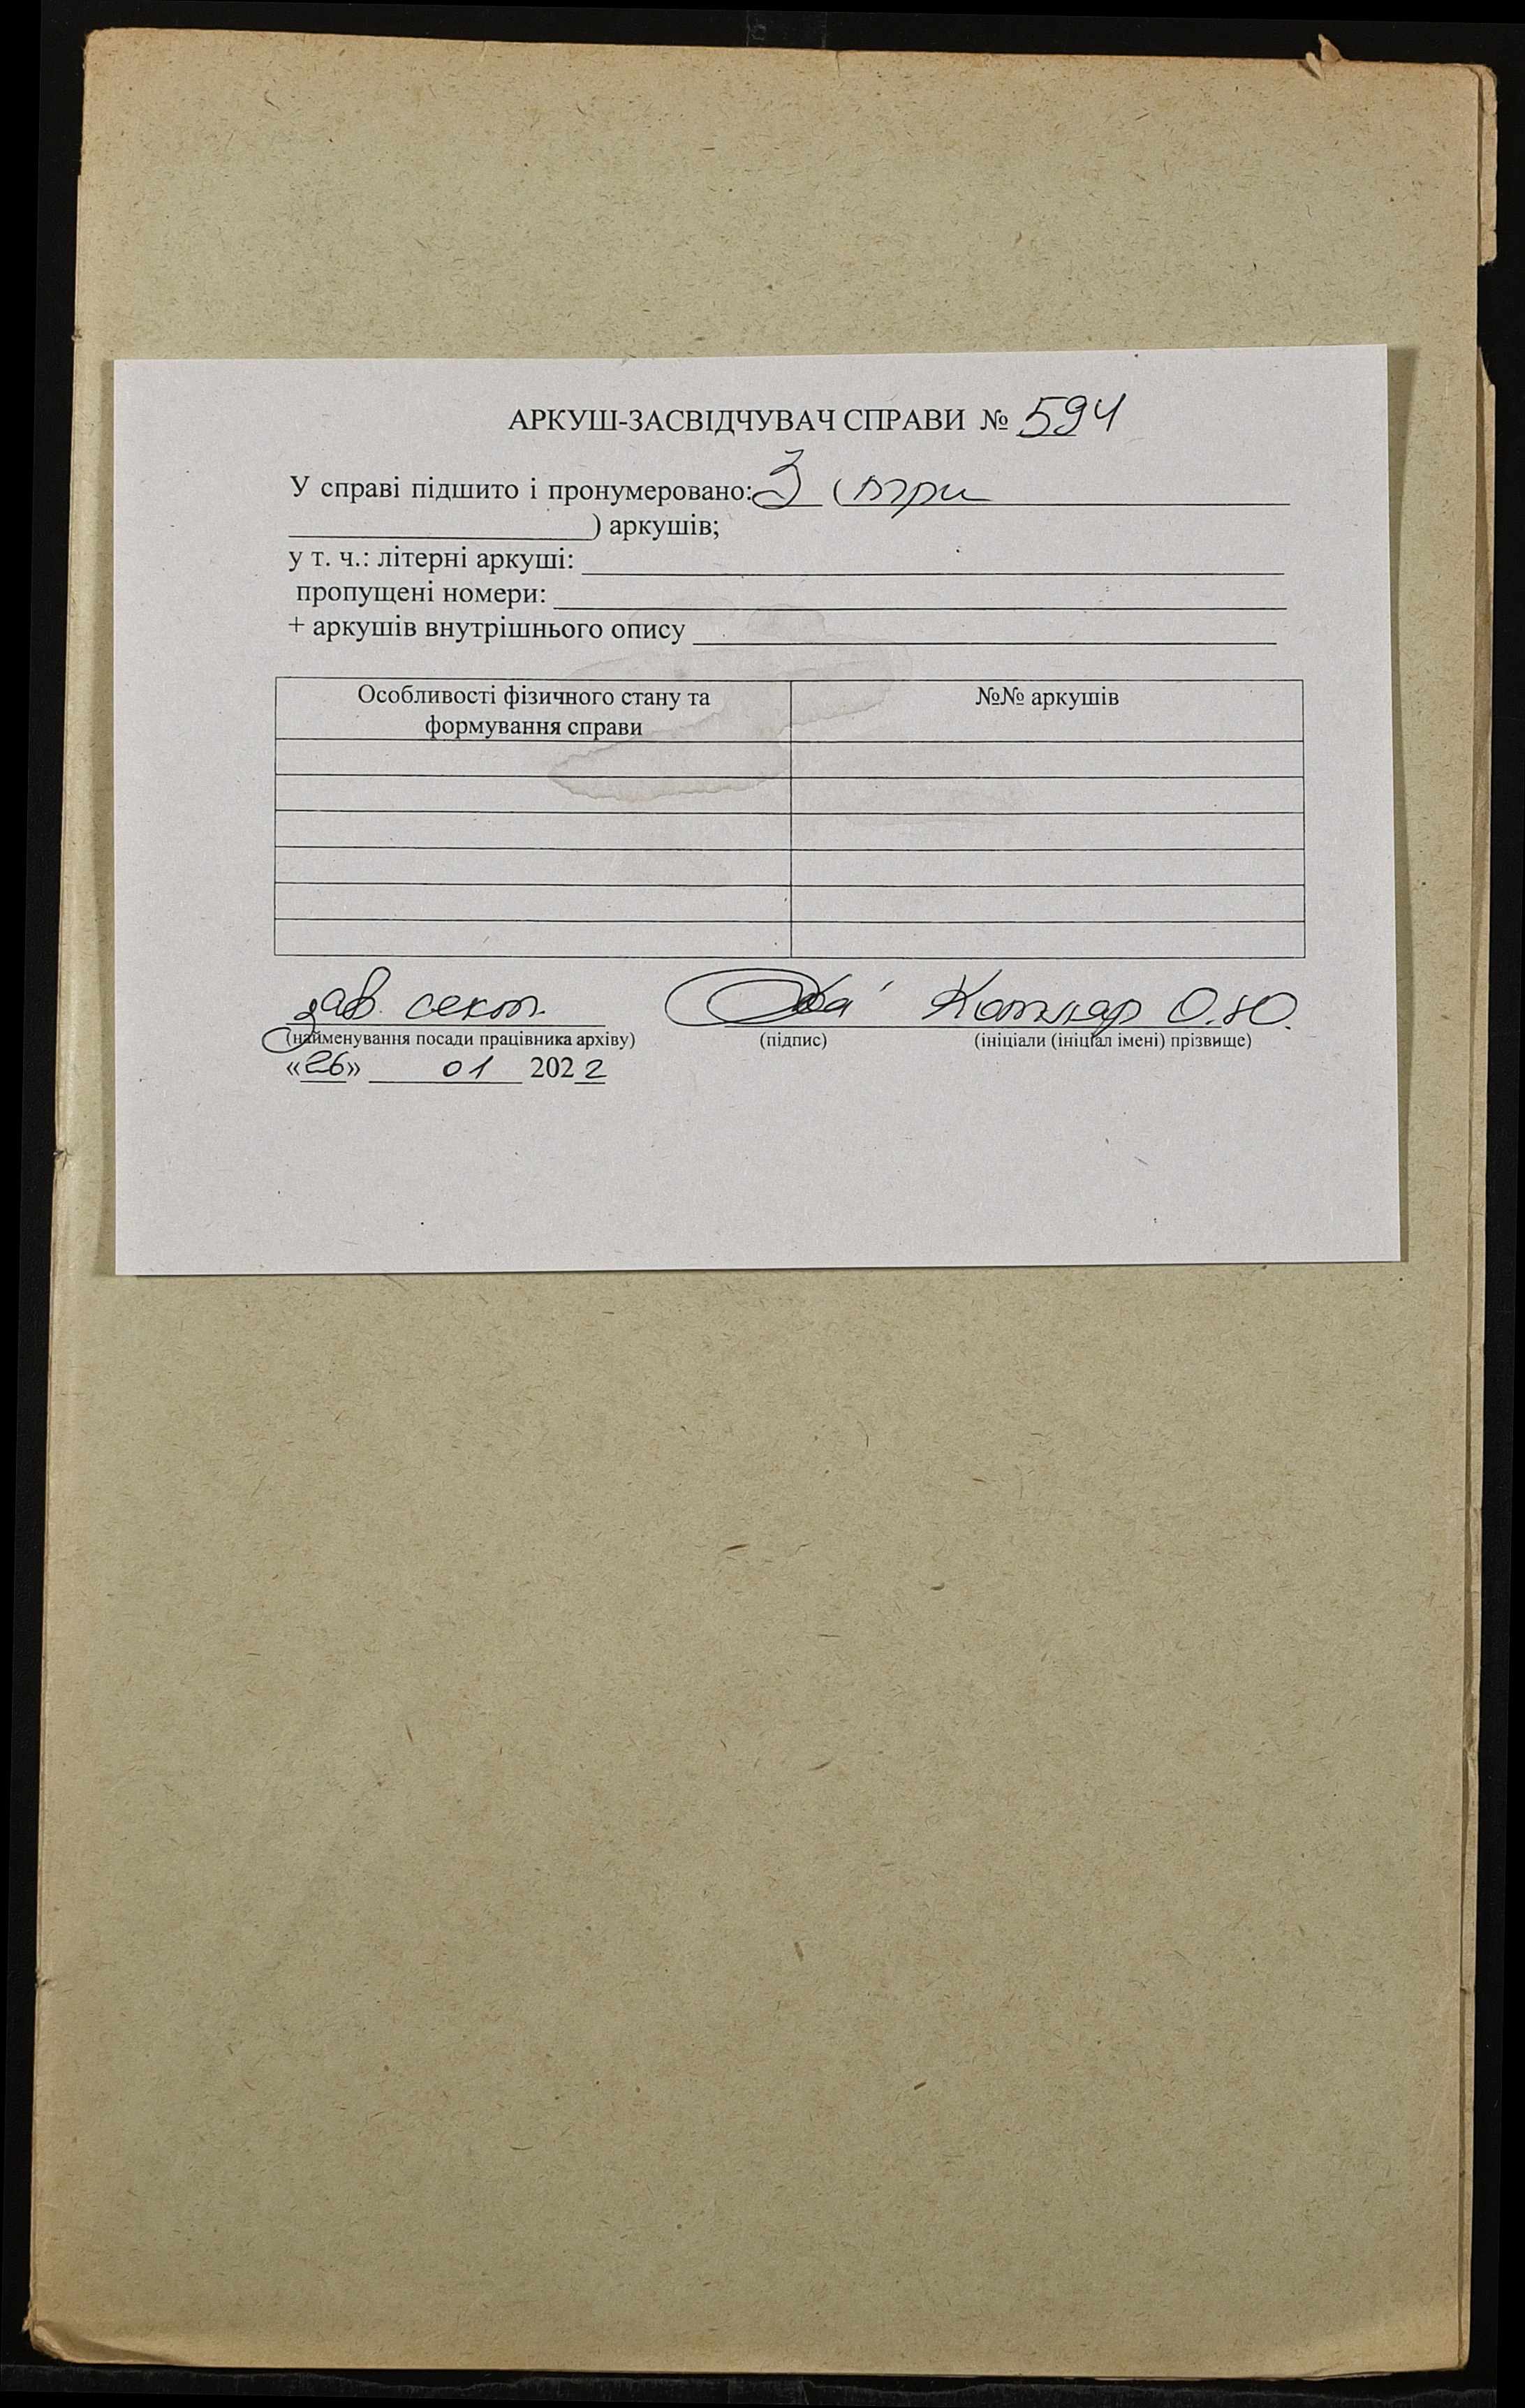 АРКУШ-ЗАСВІДЧУВАЧ СПРАВИ № 594
У справі підшито і пронумеровано: 3 (три
) аркушів;
у т. ч.: літерні аркуші:
пропущені номери:
+ аркушів внутрішнього опису
Особливості фізичного стану та
формування справи
№№ аркушів
зав. сект. Котляр О.Ю.
(найменування посади працівника архіву) (підпис) (ініціали (ініціал імені) прізвище)
«26» 01 2022